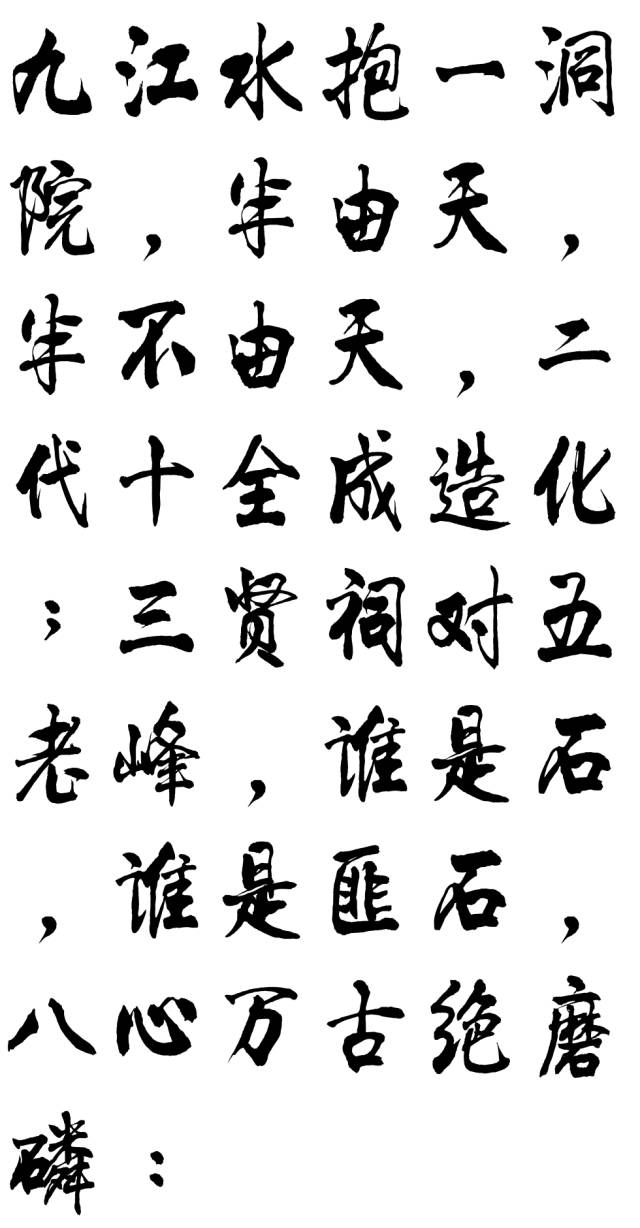 九江水抱一洞
院，半由天，
半不由天，二
代十全成造化
；三贤祠对五
老峰，谁是石
，谁是匪石，
八心万古绝磨
磷：